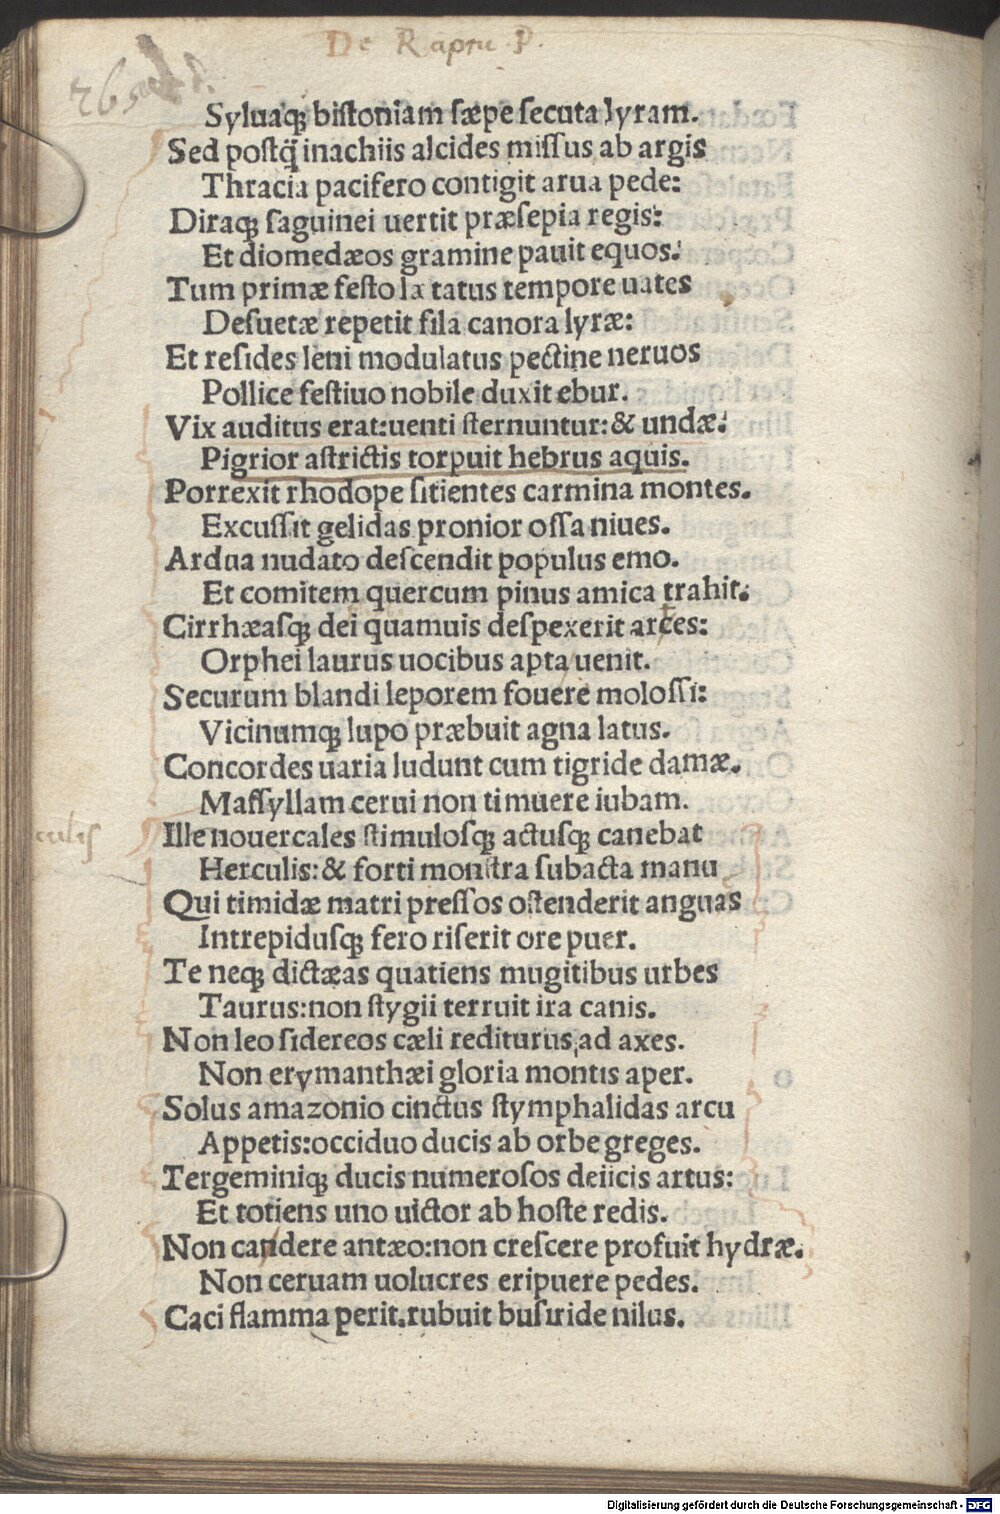 De Raptu P.
265
Syluaq; bistoniam sæpe secuta lyram.
Sed postq̃ inachiis alcides missus ab argis
Thracia pacifero contigit arua pede:
Diraq; saguinei uertit præsepia regis:
Et diomedæos gramine pauit equos:
Tum primæ festo la tatus tempore uates
Desuetæ repetit fila canora lyræ:
Et resides leni modulatus pectine neruos
Pollice festiuo nobile duxit ebur.
Vix auditus erat:uenti sternuntur:& undæ:
Pigrior astrictis torpuit hebrus aquis.
Porrexit rhodope sitientes carmina montes.
Excussit gelidas pronior ossa niues.
Ardua nudato descendit populus emo.
Et comitem quercum pinus amica trahit.
Cirrhæasq; dei quamuis despexerit arces:
Orphei laurus uocibus apta uenit.
Securum blandi leporem fouere molossi:
Vicinumq; lupo præbuit agna latus.
Concordes uaria ludunt cum tigride damæ.
Massyllam cerui non timuere iubam.
Ille nouercales stimulosq; actusq; canebat
Herculis:& forti monstra subacta manu
Qui timidæ matri pressos ostenderit anguas
Intrepidusq; fero riserit ore puer.
Te neq; dictæas quatiens mugitibus urbes
Taurus:non stygii terruit ira canis.
Non leo sidereos cæli rediturus ad axes.
Non erymanthæi gloria montis aper.
Solus amazonio cinctus stymphalidas arcu
Appetis:occiduo ducis ab orbe greges.
Tergeminiq; ducis numerosos deiicis artus:
Et totiens uno uictor ab hoste redis.
Non candere antæo:non crescere profuit hydræ.
Non ceruam uolucres eripuere pedes.
Caci flamma perit.rubuit busiride nilus.
Digitalisierung gefördert durch die Deutsche Forschungsgemeinschaft - DFG